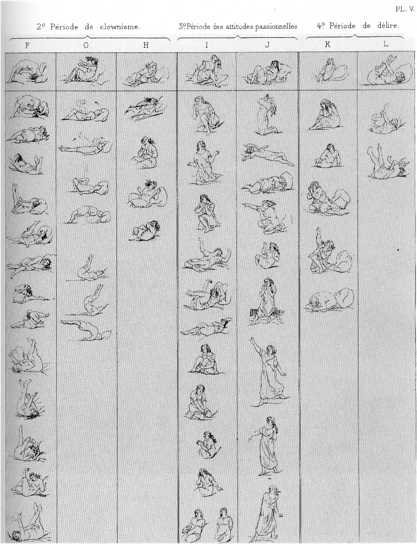 PL. V.
2e Période de clownisme. 3e Période des attitudes passionnelles 4e Période de délire.
F G H I J K L